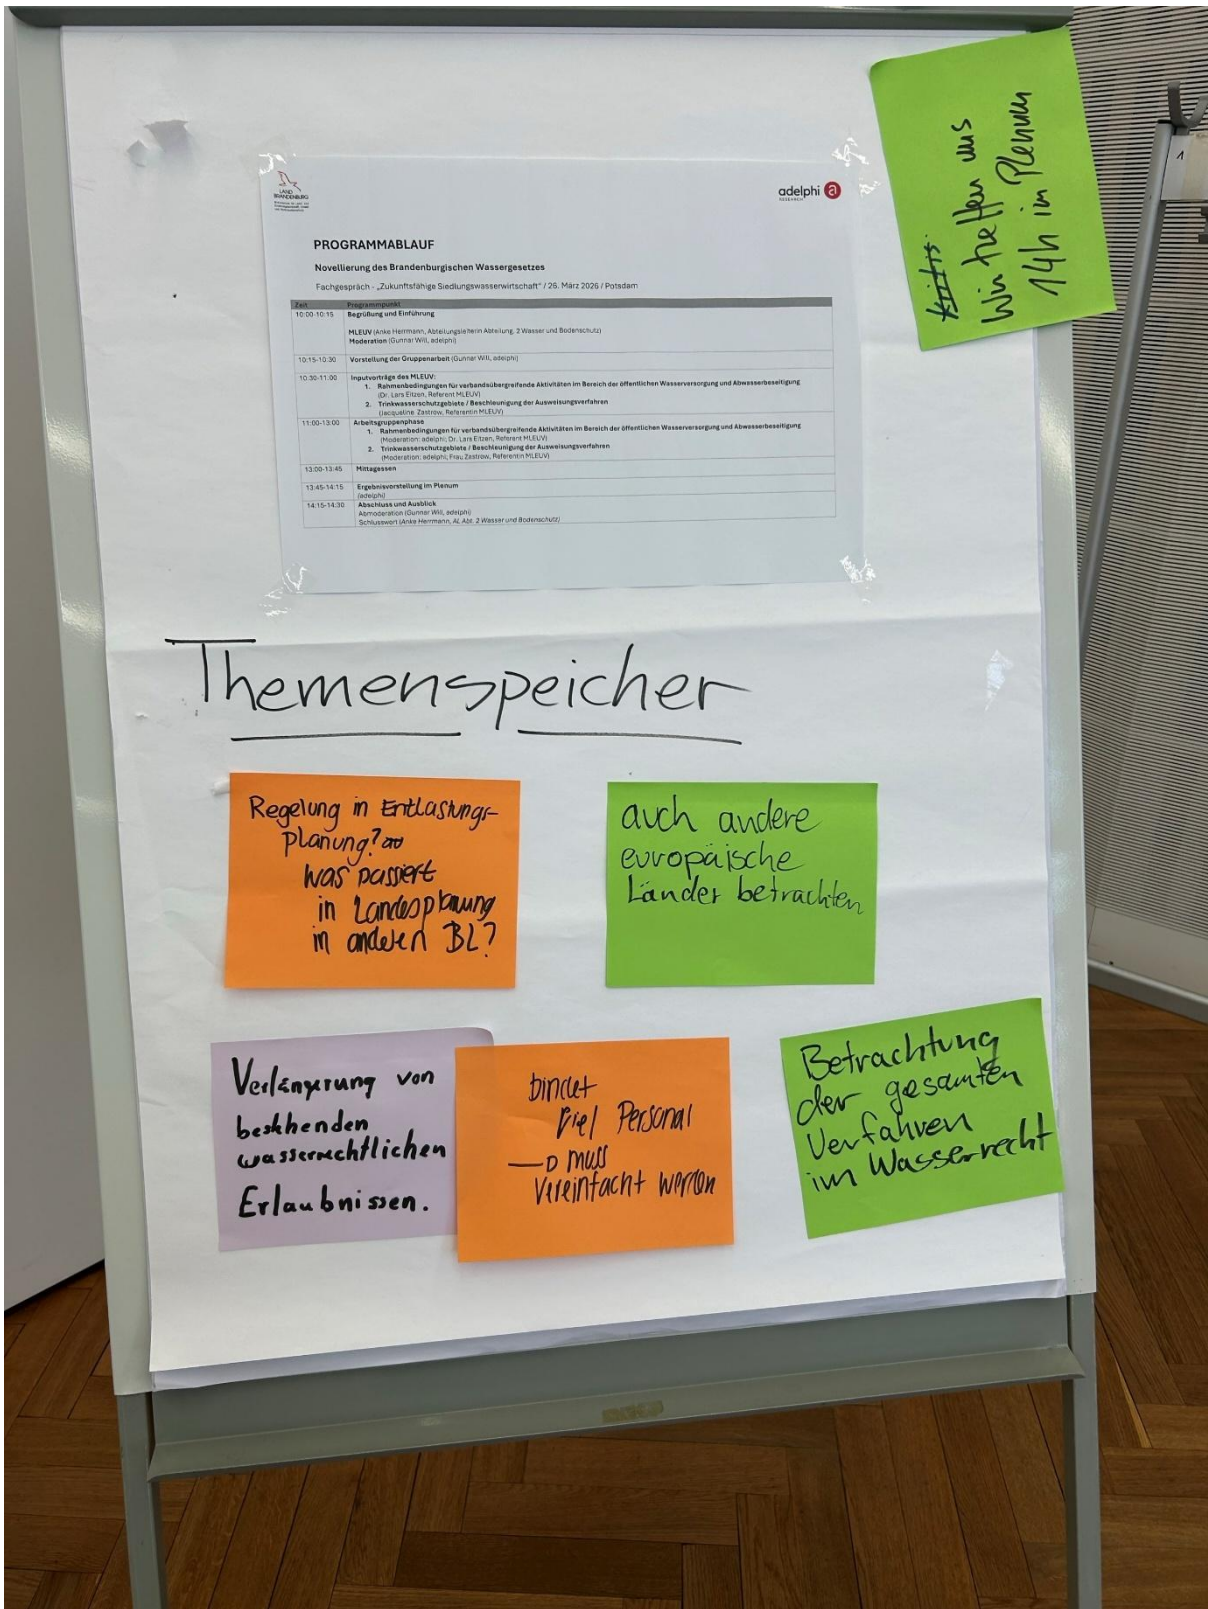 LAND
BRANDENBURG
adelphi
RESEARCH
PROGRAMMABLAUF
Novellierung des Brandenburgischen Wassergesetzes
Fachgespräch - „Zukunftsfähige Siedlungswasserwirtschaft“ / 26. März 2026 / Potsdam
Zeit Programmpunkt
10:00-10:15 Begrüßung und Einführung
MLEUV (Anke Herrmann, Abteilungsleiterin Abteilung. 2 Wasser und Bodenschutz)
Moderation (Gunnar Will, adelphi)
10:15-10:30 Vorstellung der Gruppenarbeit (Gunnar Will, adelphi)
10:30-11:00 Inputvorträge des MLEUV:
1. Rahmenbedingungen für verbandsübergreifende Aktivitäten im Bereich der öffentlichen Wasserversorgung und Abwasserbeseitigung
(Dr. Lars Eitzen, Referent MLEUV)
2. Trinkwasserschutzgebiete / Beschleunigung der Ausweisungsverfahren
(Jacqueline Zastrow, Referentin MLEUV)
11:00-13:00 Arbeitsgruppenphase
1. Rahmenbedingungen für verbandsübergreifende Aktivitäten im Bereich der öffentlichen Wasserversorgung und Abwasserbeseitigung
(Moderation: adelphi; Dr. Lars Eitzen, Referent MLEUV)
2. Trinkwasserschutzgebiete / Beschleunigung der Ausweisungsverfahren
(Moderation: adelphi; Frau Zastrow, Referentin MLEUV)
13:00-13:45 Mittagessen
13:45-14:15 Ergebnisvorstellung im Plenum
(adelphi)
14:15-14:30 Abschluss und Ausblick
Abmoderation (Gunnar Will, adelphi)
Schlusswort (Anke Herrmann, AL Abt. 2 Wasser und Bodenschutz)
Wir treffen uns
14h im Plenum
1
Themenspeicher
Regelung in Entlastungs-
planung?
was passiert
in Landesplanung
in anderen BL?
auch andere
europäische
Länder betrachten
Verlängerung von
bestehenden
wasserrechtlichen
Erlaubnissen.
bindet
viel Personal
muss
vereinfacht werden
Betrachtung
der gesamten
Verfahren
im Wasserrecht